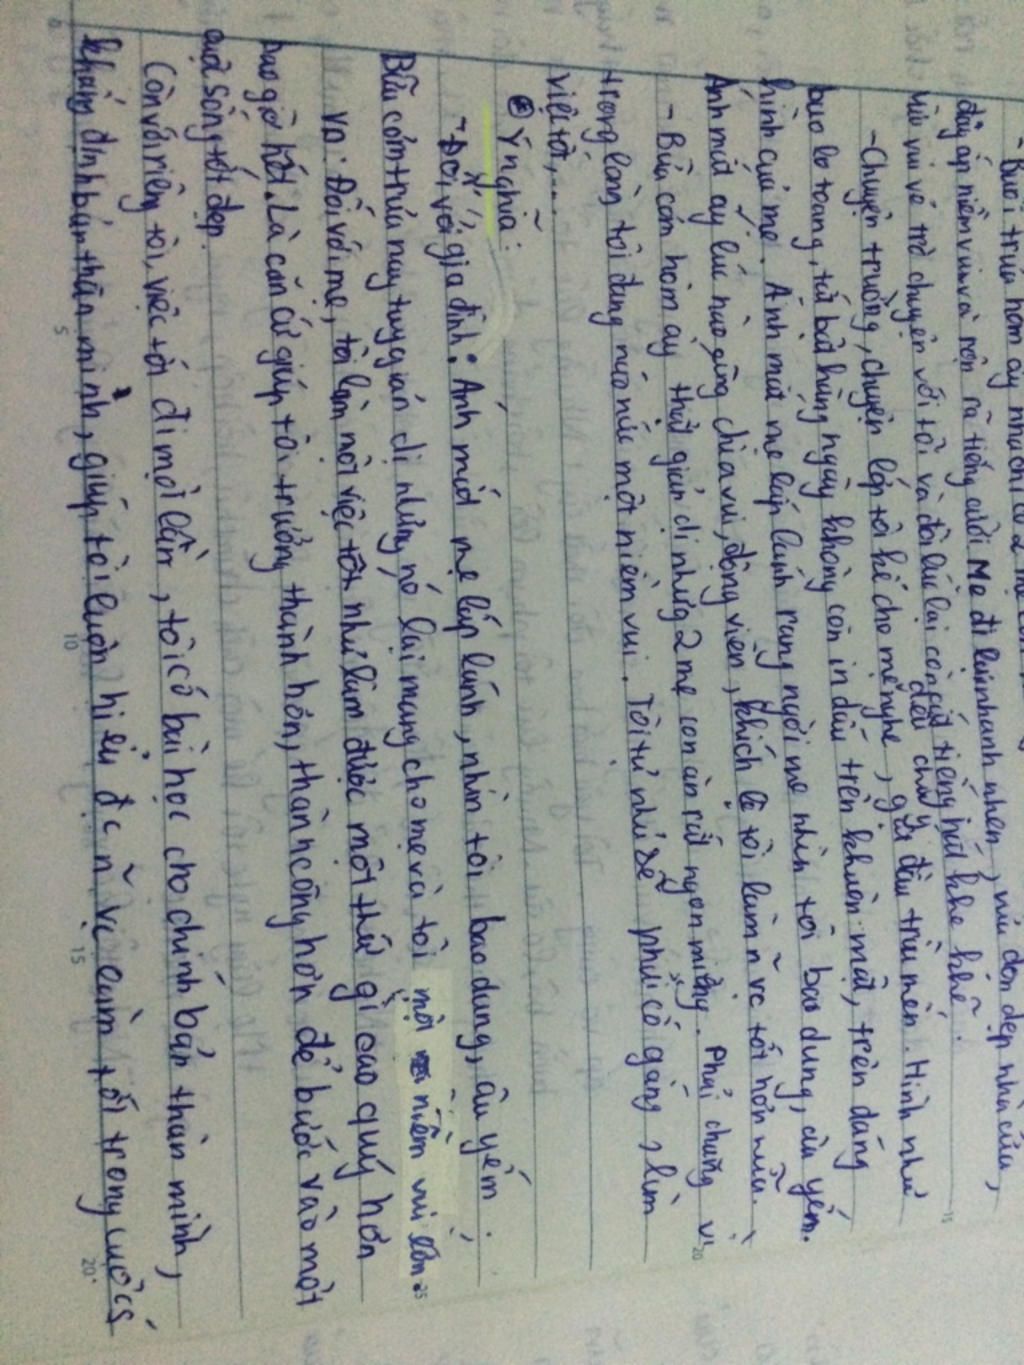 - Buổi trưa hôm ấy nhà chỉ có 2 mẹ con
đầy ắp niềm vui và rộn rã tiếng cười Mẹ đi lại nhanh nhẹn, dọn dẹp nhà cửa,
vui vẻ trò chuyện với tôi và đôi lúc lại còn cất tiếng hát khe khẽ.
- Chuyện trường, chuyện lớp tôi kể cho mẹ nghe, đều chú ý gật đầu trìu mến. Hình như
bao lo toang, tất bật hằng ngày không còn in dấu trên khuôn mặt, trên dáng
hình của mẹ. Ánh mắt mẹ lấp lánh rạng ngời mẹ nhìn tôi bao dung, âu yếm.
Ánh mắt ấy lúc nào cũng chia vui, động viên, khích lệ tôi làm n̄ vc tốt hơn nữa.
- Bữa cơm hôm ấy thật giản dị nhưng 2 mẹ con ăn rất ngon miệng. Phải chăng vì
trong lòng tôi đang náo nức một niềm vui. Tôi tự nhủ sẽ phải cố gắng, làm
việc tốt,...
* Ý nghĩa:
- Đối với gia đình: Ánh mắt mẹ lấp lánh, nhìn tôi bao dung, âu yếm.
Bữa cơm trưa nay tuy giản dị nhưng nó lại mang cho mẹ và tôi một niềm vui lớn
va: Đối với mẹ, tôi làm một việc tốt như làm được một thứ gì cao quý hơn
bao giờ hết. Là căn cứ giúp tôi trưởng thành hơn, thành công hơn để bước vào một
cuộc sống tốt đẹp.
Còn với riêng tôi, việc tôi đi mọi lần, tôi có bài học cho chính bản thân mình,
khẳng định bản thân mình, giúp tôi luôn hiểu đc n̄ vc làm tốt trong cuộc s